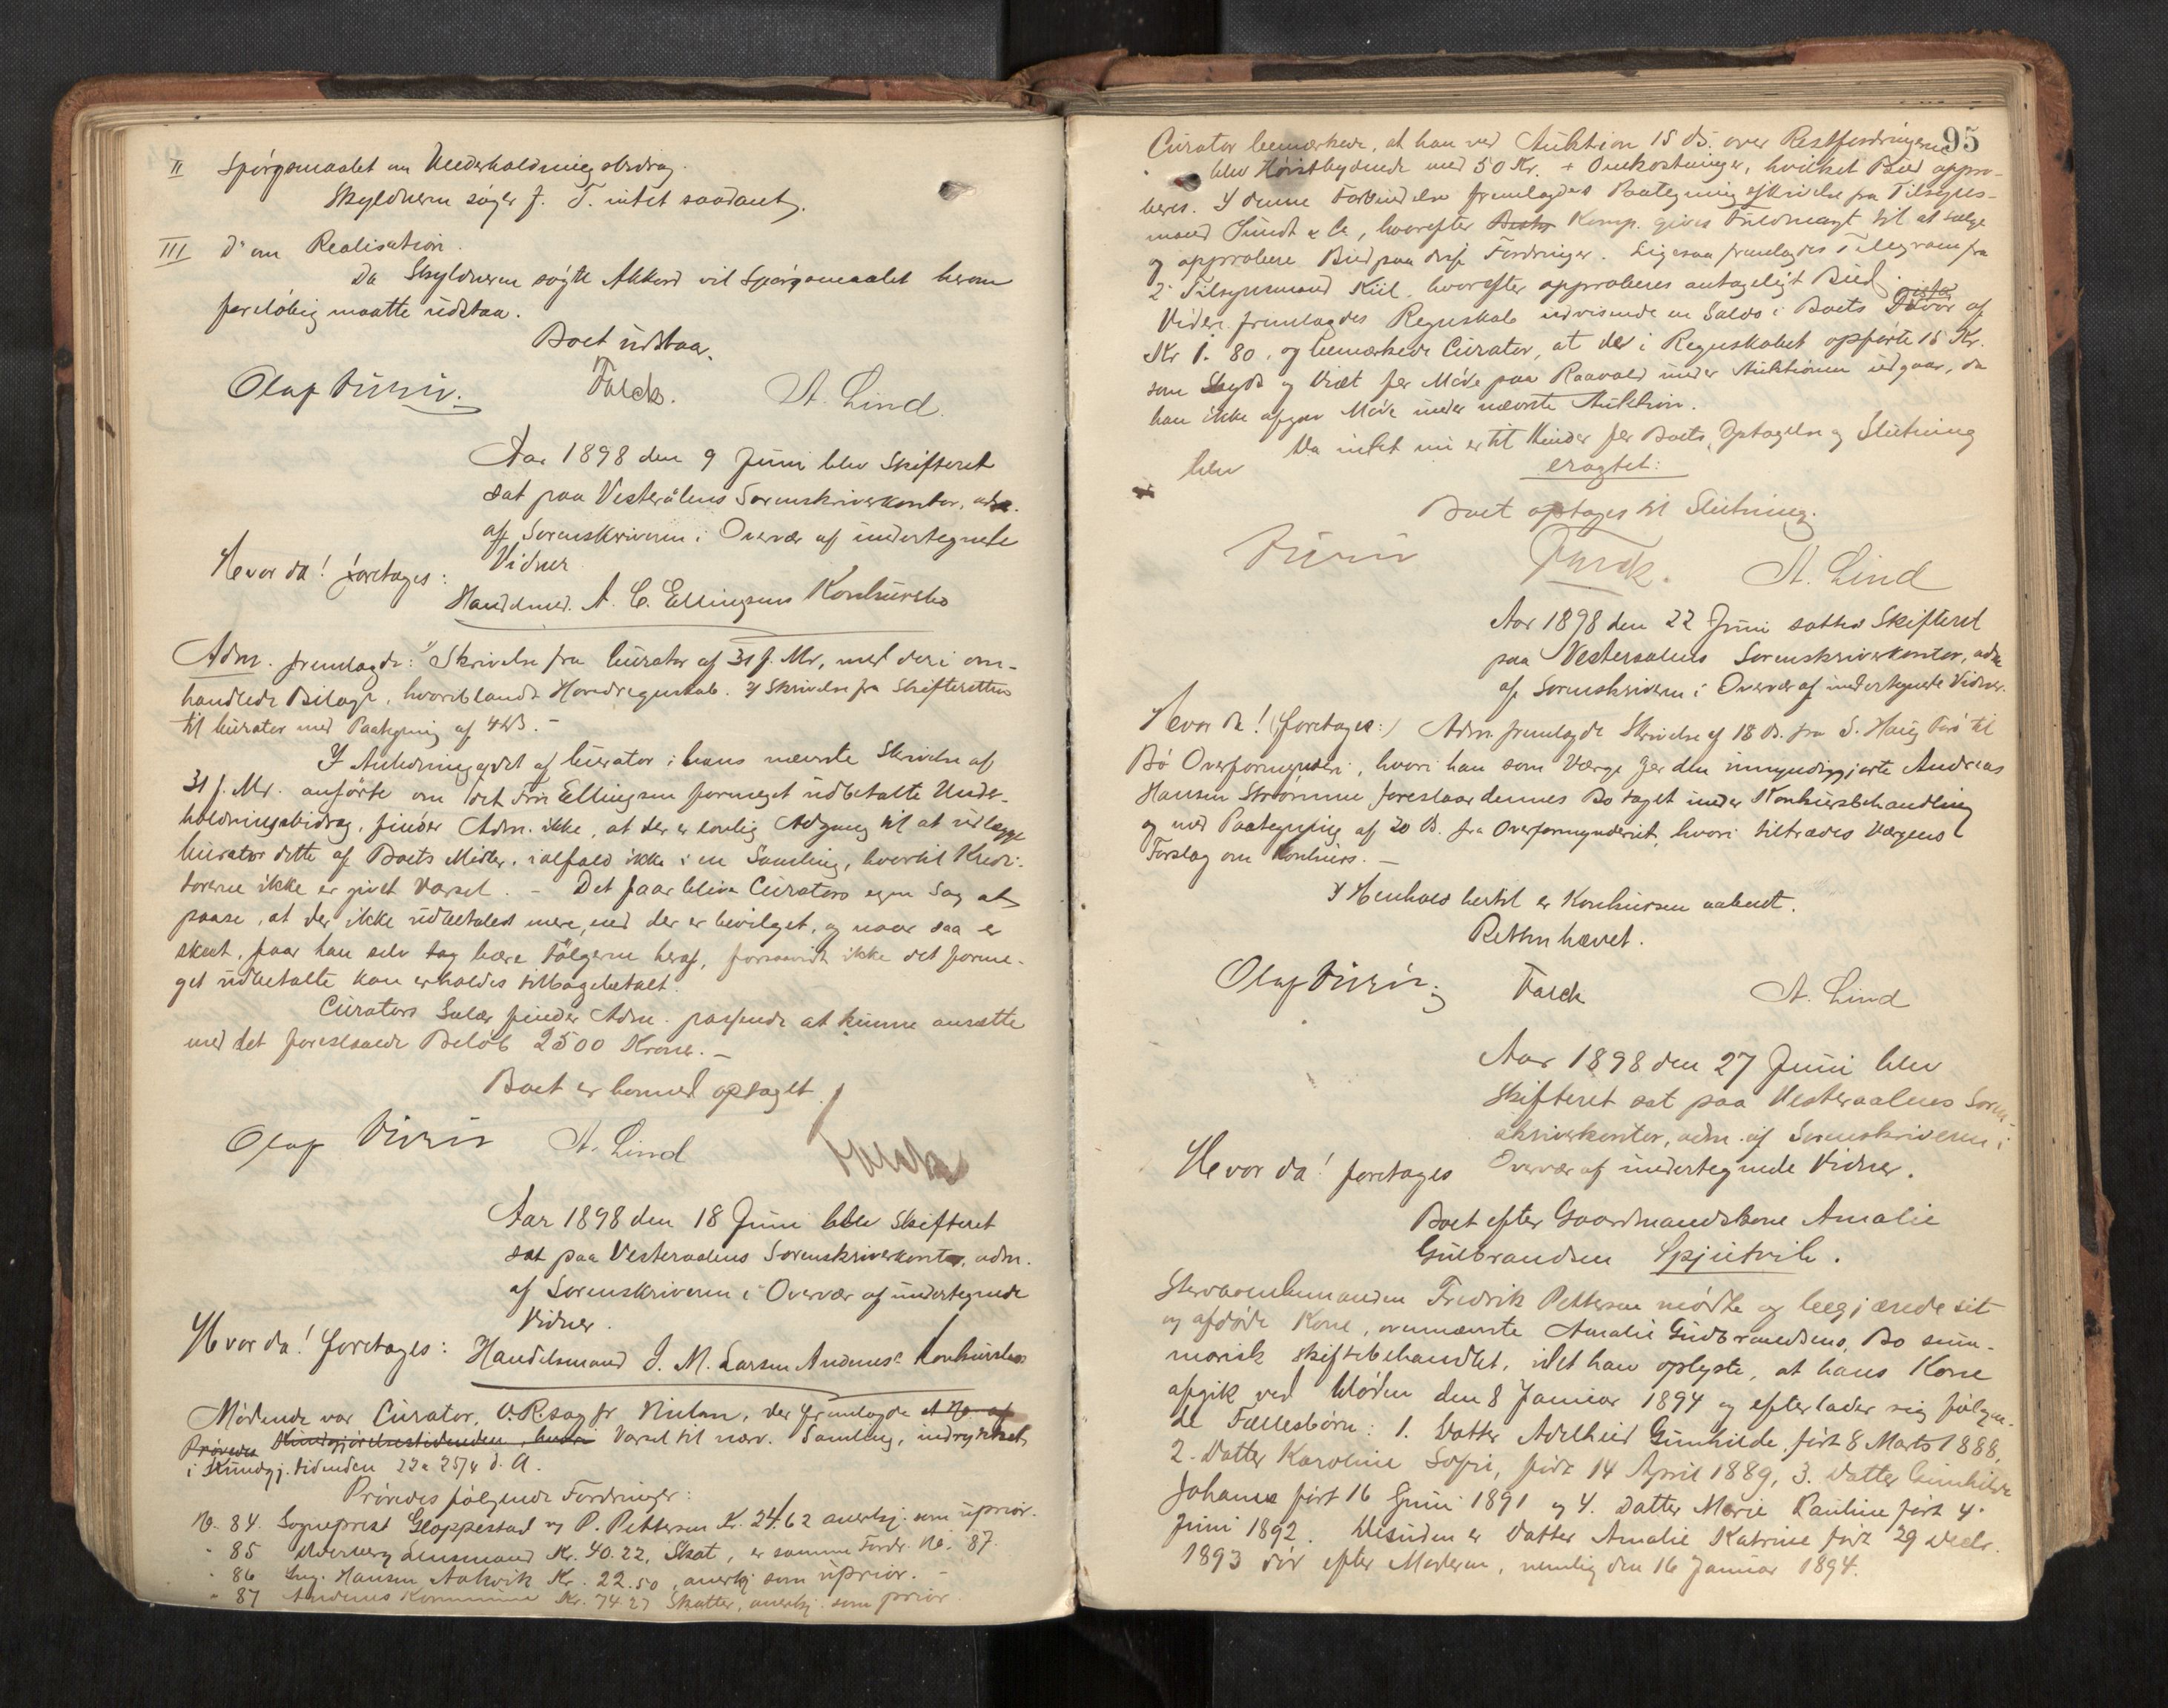 II Spørgsmaalet om Underholdningsbidrag.
Skyldneren søger f. T. intet saadant.
III Do om Realisation.
Da Skyldneren søgte Akkord vil Spørgsmaalet herom
foreløbig maatte udstaa.
Boet udstaar.
Olaf Falck. A. Lind.
Aar 1898 den 9 Juni blev Skifteret
sat paa Vesterålens Sorenskriverkontor, adm.
af Sorenskriveren i Overvær af undertegnede
Vidner
Hvor da! foretages:
Handelsmd. A. C. Ellingsens Konkursbo
Adm. fremlagde: 1) Skrivelse fra Curator af 31 f. Md., med deri om-
handlede Bilage, hvoriblandt Hovedregnskab. 2) Skrivelse fra Skifteretten
til Curator med Paategning af 4 ds. -
I Anledning af det af Curator i hans nævnte Skrivelse af
31 f. Md. anførte om det Fru Ellingsen formeget udbetalte Under-
holdningsbidrag, finder Adm. ikke, at der er lovlig Adgang til at udlægge
Curator dette af Boets Midler, ialfald ikke i en Samling, hvortil Kredi-
torerne ikke er givet Varsel. - Det faar blive Curators egen Sag at
paase, at der ikke udbetales mere, end der er bevilget, og naar saa er
skeet, faar han selv tag bære Følgerne heraf, forsaavidt ikke det forme-
get udbetalte kan erholdes tilbagebetalt.
Curators Salær finder Adm. passende at kunne ansætte
med det foreslaaede Beløb 2500 Kroner. -
Boet er hermed optaget.
Olaf A. Lind Falck
Aar 1898 den 18 Juni blev Skifteret
sat paa Vesteraalens Sorenskriverkontor, adm.
af Sorenskriveren i Overvær af undertegnede
Vidner.
Hvor da! foretages: Handelsmand J. M. Larsen Andenes' Konkursbo
Mødende var Curator, O.R.sagfr. Nilsen, der fremlagde et No af
Kundgjørelsestidenden, hvori Varsel til nærv. Samling, indrykket
i Kundgj.tidenden 22 & 25/4 d. A.
Prøvedes følgende Fordringer:
No. 84. Sogneprest Gloppestad og P. Pettersen Kr. 24.62 anerkj. som uprior.
" 85 Lensmand Kr. 40.22, Skat, er samme Fordr. No. 87.
" 86 Hansen Aakvik Kr. 22.50, anerkj. som uprior. -
" 87 Andenes Kommune Kr. 74 27 Skatter, anerkj. som prior
95
Curator bemærkede, at han ved Auktion 15 ds. over Restfordringerne
blev Høistbydende med 50 Kr. + Omkostninger, hvilket Bud appro-
beres. I denne Forbindelse fremlagdes Paategningsskrivelse fra Tilsyns-
mænd Sundt & Co, hvorefter Komp. gives Fuldmagt til at sælge
og approbere Bud paa disse Fordringer. Ligesaa fremlagdes Telegram fra
2. Tilsynsmand Kiil, hvorefter approberes antageligt Bud.
Videre fremlagdes Regnskab udvisende en Saldo i Boets Disfavør af
Kr 1. 80, og bemærkede Curator, at det i Regnskabet opførte 15 Kr.
som Skyds og Diæt for Møde paa under Auktionen udgaar, da
han ikke afgav Møde under nævnte Auktion.
Da intet nu er til Hinder for Boets Optagelse og Slutning
blev
eragtet:
Boet optages til Slutning.
Falck. A. Lind
Aar 1898 den 22 Juni sattes Skifteret
paa Vesteraalens Sorenskriverkontor, adm
af Sorenskriveren i Overvær af undertegnede Vidner.
Hvor da! (foretages:) Adm. fremlagde Skrivelse af 18 ds. fra S. Haug Bø til
Bø Overformynderi, hvori han som Værge for den umyndiggjorte Andreas
Hansen Strømme foreslaar dennes Bo taget under Konkursbehandling
og med Paategning af 20 ds. fra Overformynderiet, hvori tiltrædes Værgens
Forslag om Konkurs. -
I Henhold hertil er Konkursen aabnet.
Retten hævet.
Olaf Falck A. Lind
Aar 1898 den 27 Juni blev
Skifteret sat paa Vesteraalens Soren-
skriverkontor, adm. af Sorenskriveren i
Overvær af undertegnede Vidner.
Hvor da! foretages
Boet efter Gaardmandskone Amalie
Gulbrandsen Spjutvik.
Fredrik Pettersen mødte og begjærede sit
og afdøde Kone, ovennævnte Amalie Gudbrandsens, Bo sum-
marisk skiftebehandlet, idet han oplyste, at hans Kone
afgik ved Døden den 8 Januar 1894 og efterlader sig følgen-
de Fællesbørn: 1. Datter Adelheid Gunhilde født 8 Marts 1888,
2. Datter Karoline Sofie, født 14 April 1889, 3. Datter Gunhilde
Johanna født 16 Juni 1891 og 4. Datter Marie Pauline født 4.
Juni 1892. Desuden er Datter Amalie Katrine født 29 Decbr.
1893 død efter Moderen, nemlig den 16 Januar 1894.